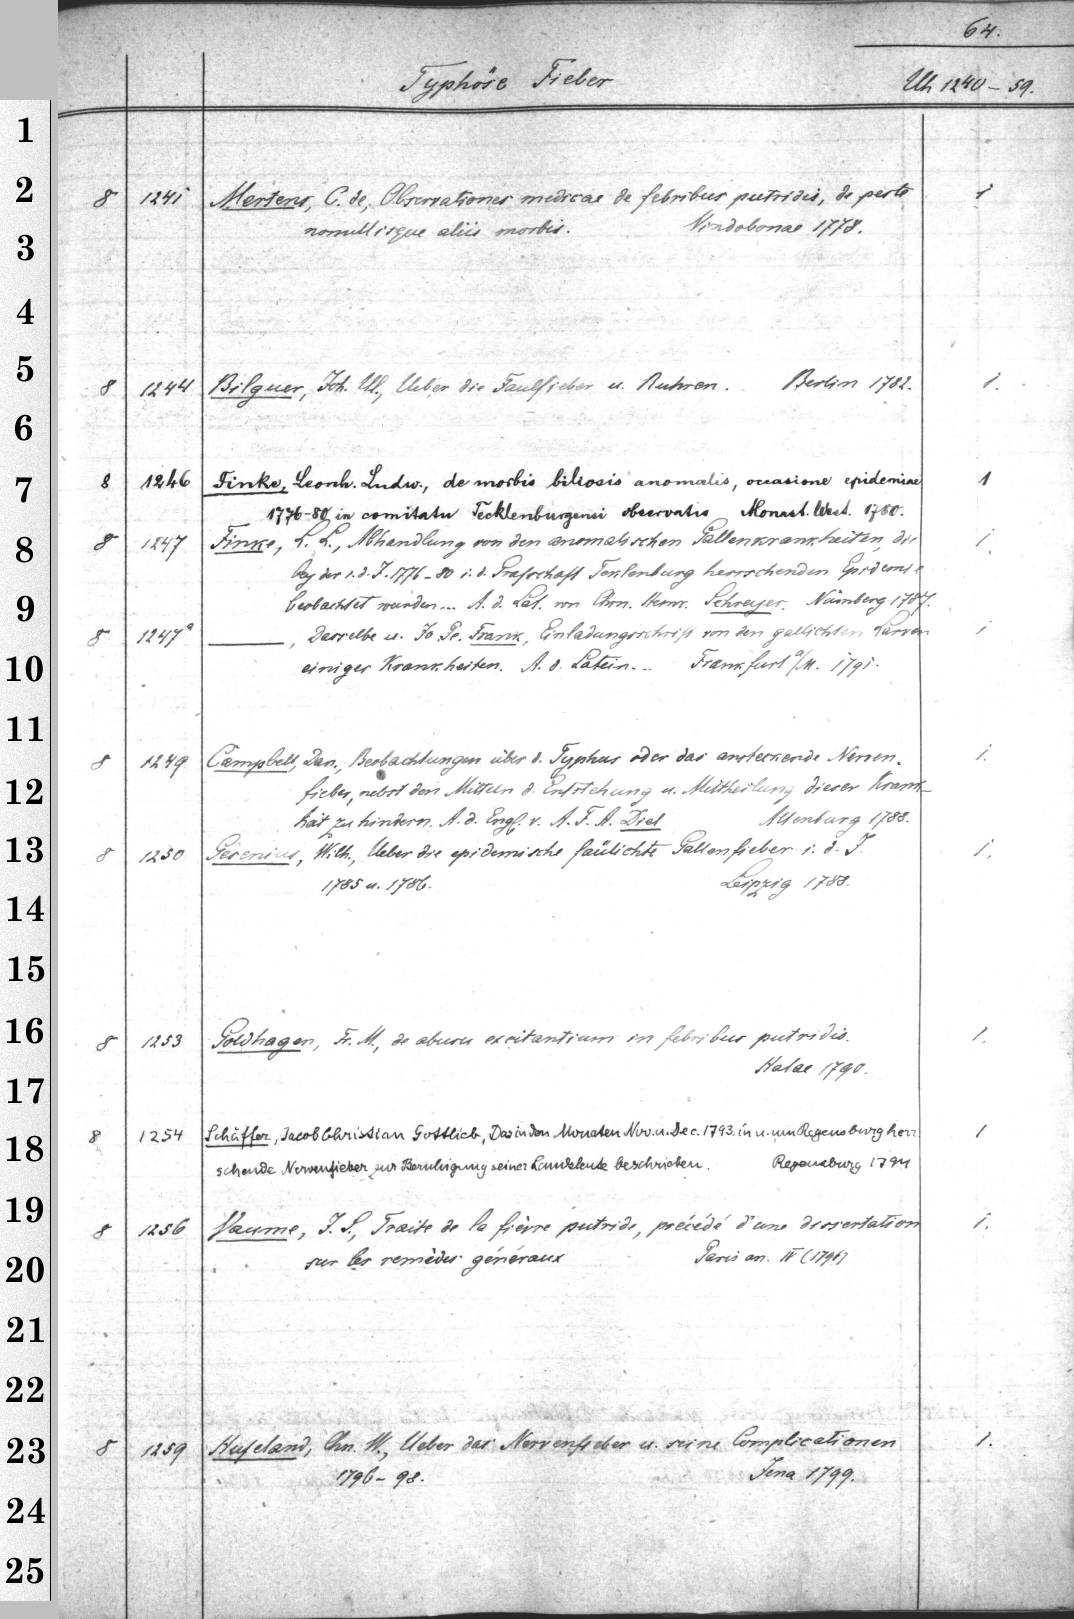 64.
Typhöse Fieber Uh 1240 – 59.
1
2 8 1241 Mertens, C. de, Observationes medicae de febribus putridis, de peste 1
3 nonnullisque aliis morbis. Vindobonae 1778.
4
5 8 1244 Bilguer, Joh. Ul., Ueber die Faulfieber u. Ruhren. Berlin 1782. 1.
6
7 8 1246 Finke, Leonh. Ludw., de morbis biliosis anomalis, occasione epidemiae 1
1776-80 in comitatu Tecklenburgensi observatis Monast. West. 1780.
8 8 1247 Finke, L. L., Abhandlung von den anomalischen Gallenkrankheiten, die 1.
bey der i. d. J. 1776–80 i. d. Grafschaft Teklenburg herrschenden Epidemie
9 beobachtet wurden... A. d. Lat. von Chrn. Henr. Schreyer. Nürnberg 1787.
8 1247a ———, Dasselbe u. Jo Pe. Frank, Einladungsschrift von den gallichten Larven 1
10 einiger Krankheiten. A. d. Latein... Frankfurt a/M. 1791.
11
8 1249 Campbell, Dan., Beobachtungen über d. Typhus oder das ansteckende Nerven- 1.
12 fieber, nebst den Mitteln d. Entstehung u. Mittheilung dieser Krank-
heit zu hindern. A. d. Engl. v. A. F. A. Diel Altenburg 1788.
13 8 1250 Gesenius, Wilh., Ueber die epidemische faülichte Gallenfieber i. d. J. 1.
1785 u. 1786. Leipzig 1788.
14
15
16 8 1253 Goldhagen, Fr. M., de abusu excitantium in febribus putridis. 1.
Halae 1790.
17
18 8 1254 Schäffer, Jacob Christian Gottlieb, Das in den Monaten Nov. u. Dec. 1793. in u. um Regensburg herr 1
schende Nervenfieber zur Beruhigung seiner Landsleute beschrieben. Regensburg 1794
19 8 1256 Vaume, J. S., Traite de la fièvre putride, précédé d'une dissertation 1.
20 sur les remèdes généraux Paris an. IV (1796)
21
22
23 8 1259 Hufeland, Chn. W., Ueber das Nervenfieber u. seine Complicationen 1.
1796 – 98. Jena 1799.
24
25